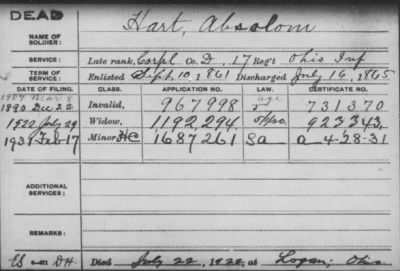 DEAD
NAME OF SOLDIER: Hart, Absolom
SERVICE: Late rank, Corpl Co. D, 17 Reg't Ohio Inf
TERM OF SERVICE: Enlisted Sept. 10, 1861 Discharged July 16, 1865
DATE OF FILING. CLASS. APPLICATION NO. LAW. CERTIFICATE NO.
Mar 8
1890 Dec 22 Invalid, 967998 age 731370
1922 July 29 Widow, 1192,294. 923343,
1931 Feb 17 Minor HC 1687261 Sa a 4-28-31
ADDITIONAL SERVICES:
REMARKS:
Died July 22, 1922, at Logan, Ohio